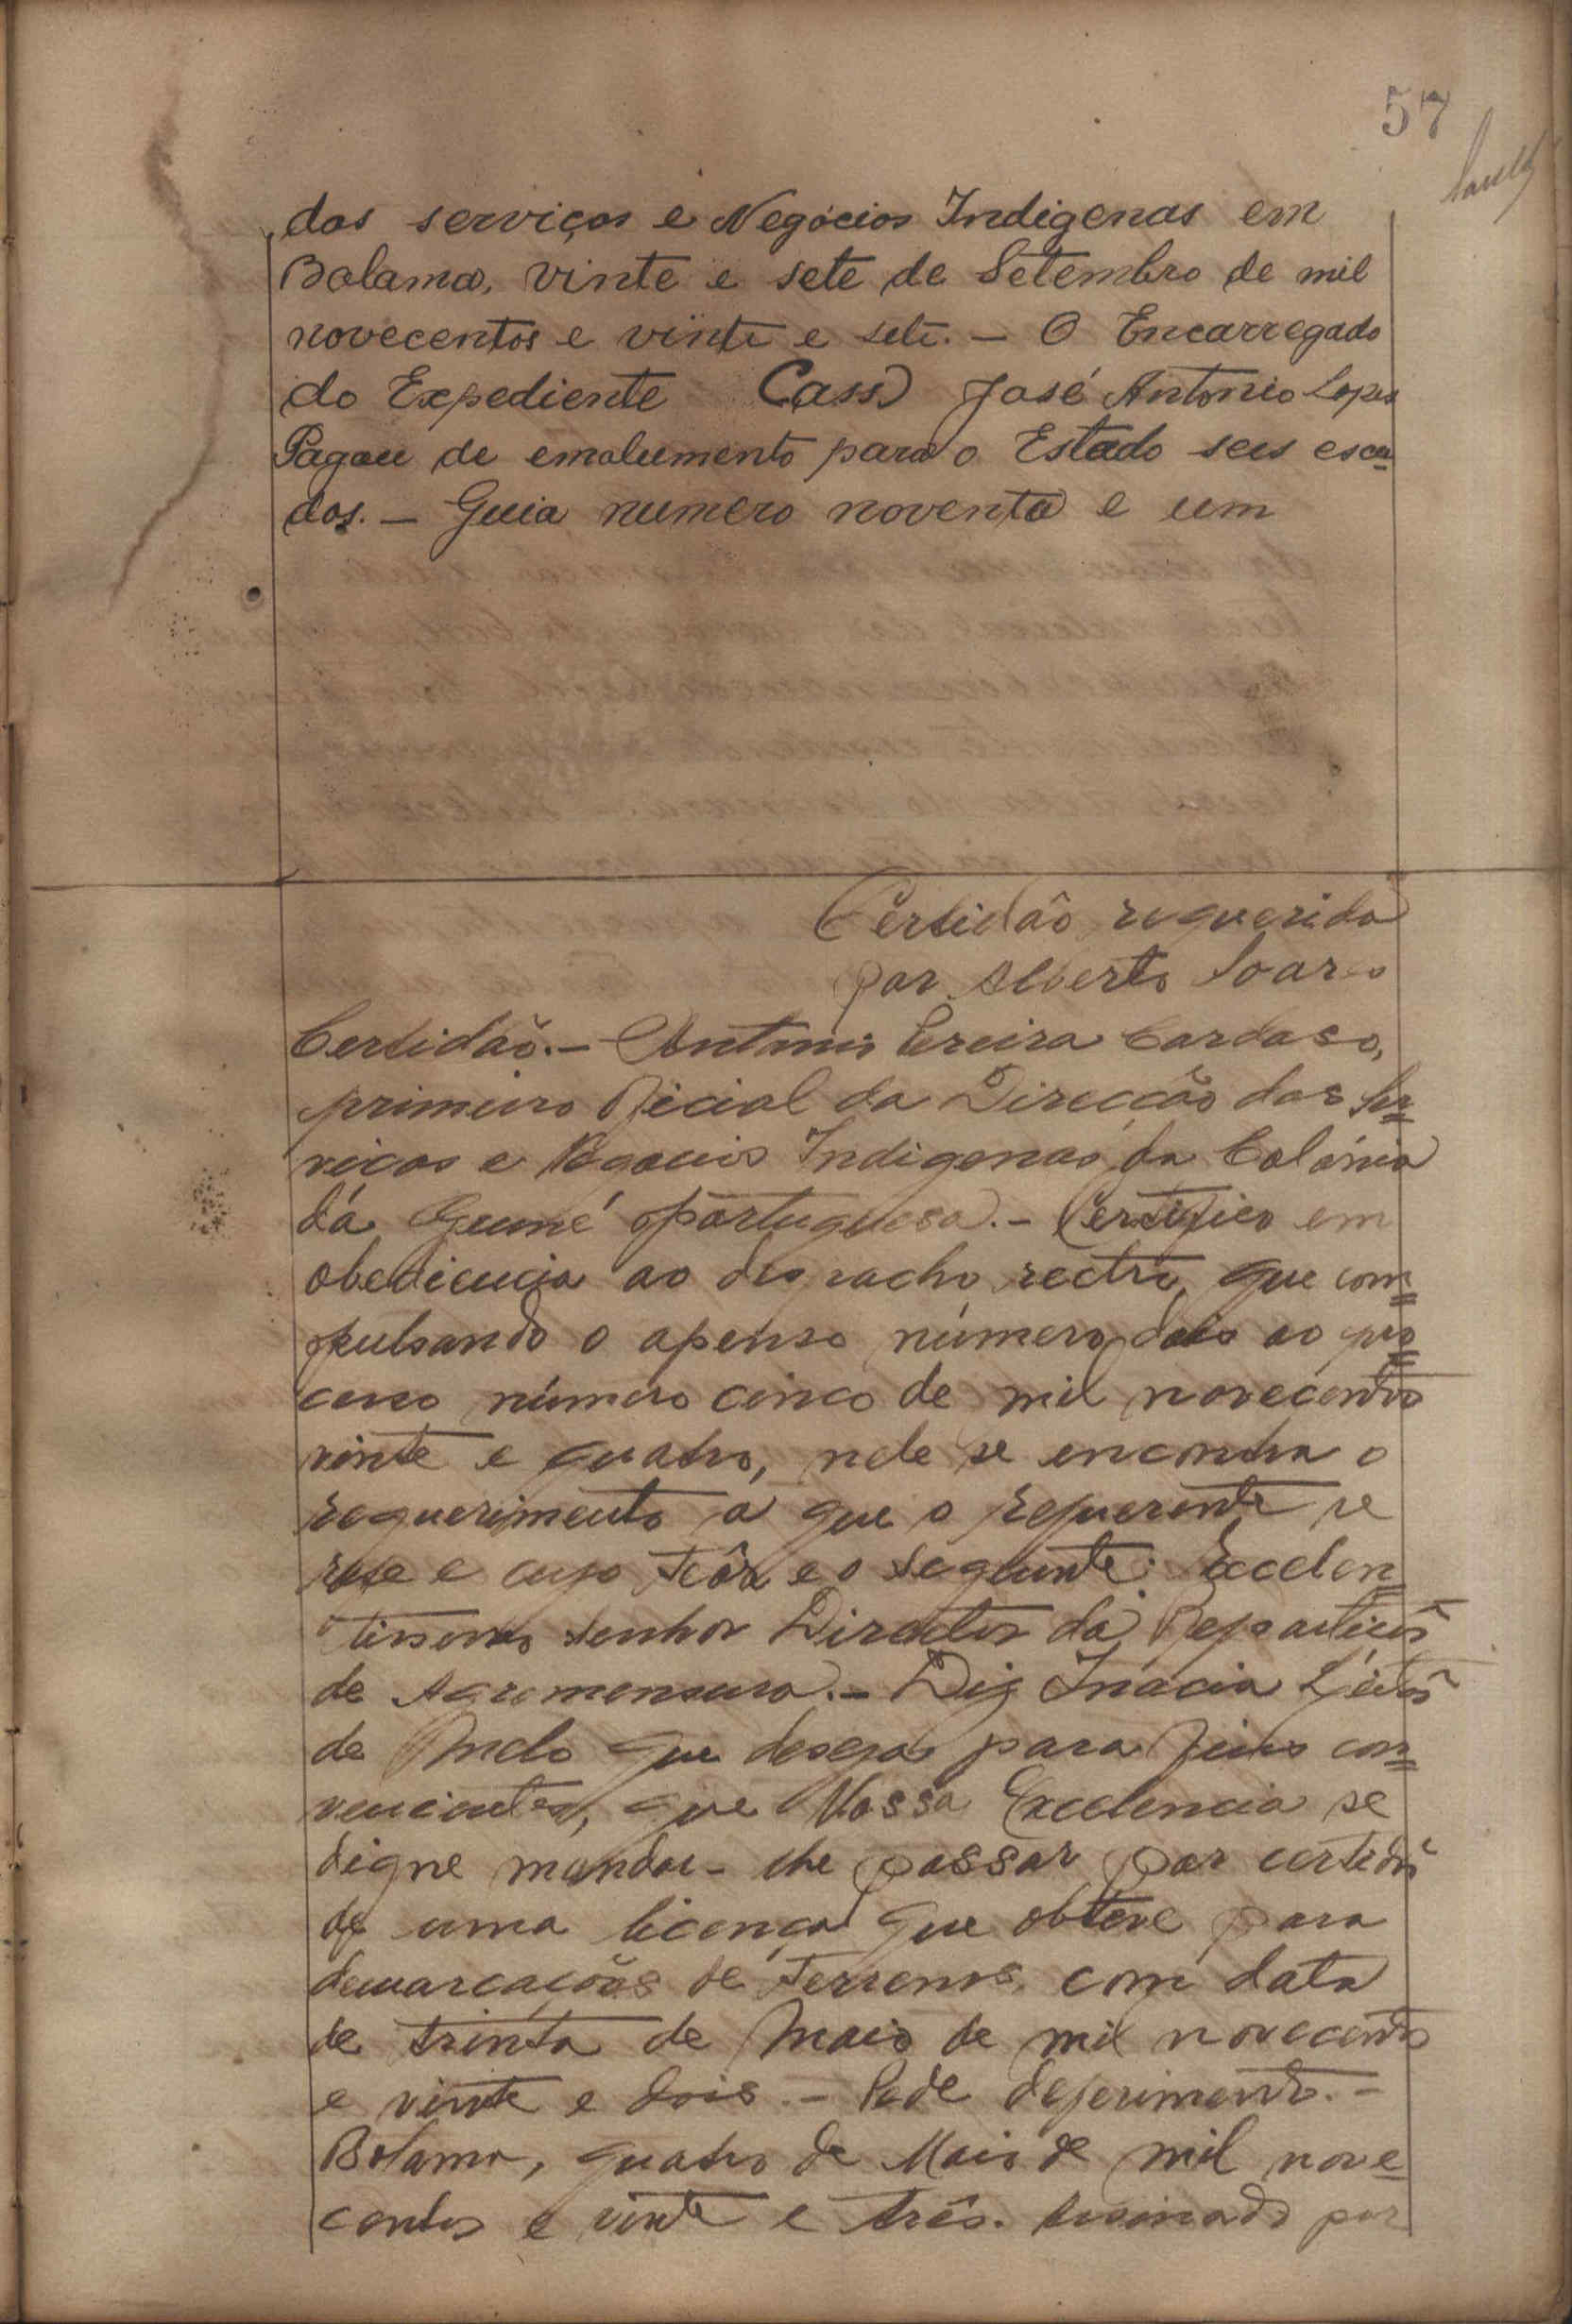 57
dos serviços e Negócios Indigenas em
Bolama, vinte e sete de Setembro de mil
novecentos e vinte e sete. — O Encarregado
do Expediente (ass) José Antonio Lopes
Pagou de emolumento para o Estado seis escu-
dos. — Guia numero noventa e um
Certidão requerida
por Alberto Soares
Certidão. — Antonio Pereira Cardoso,
primeiro oficial da Direcção dos Ser=
viços e Negocios Indigenas da Colónia
da Guiné Portuguesa. — Certifico em
obediencia ao despacho rectro, que com=
pulsando o apenso número dois ao pro=
cesso número cinco de mil novecentos
vinte e quatro, nele se encontra o
requerimento a que o requerente se
e cujo teôr e o seguinte: Excelen=
tissimo Senhor Director da Repartição
de Agrimensura. — Diz Inácia Leitão
de Melo que deseja para fins con=
venientes, que Vossa Excelencia se
digne mandar-lhe passar por certidão
de uma licença que obteve para
demarcações de terrenos, com data
de trinta de Maio de mil novecentos
e vinte e dois. — Pede deferimento. —
Bolama, quatro de Maio de mil nove=
centos e vinte e três. Assinado por